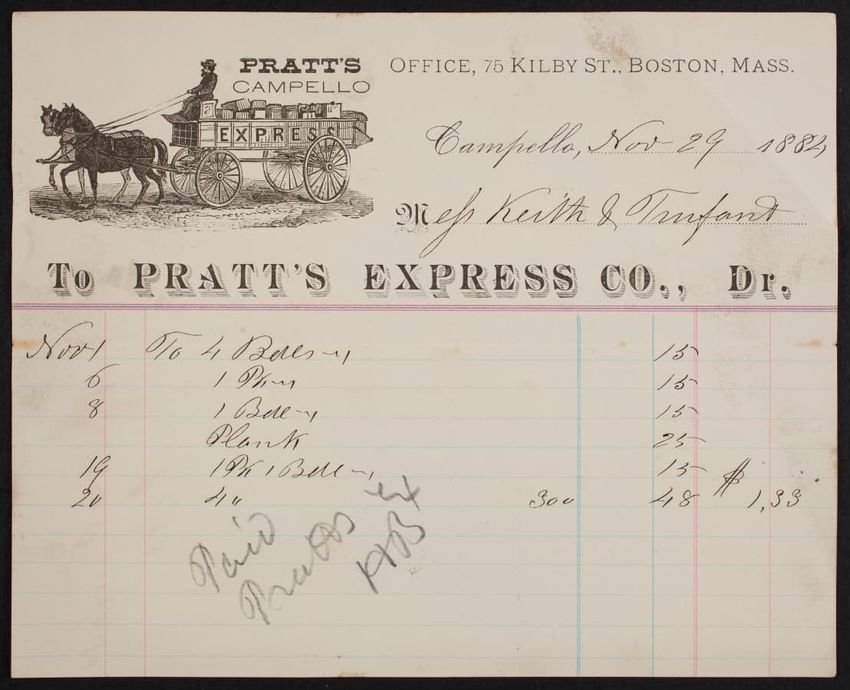 PRATT'S
CAMPELLO
EXPRESS
OFFICE, 75 KILBY ST., BOSTON, MASS.
Campello, Nov 29 1882
Mess Keith & Trufant
To PRATT'S EXPRESS CO., Dr.
Nov 1 To 4 Bdls 15
6 1 Pk 15
8 1 Bdl 15
Plank 25
19 1 Pk 1 Bdl 15
20 4 " 300 48 $ 1,33
Paid
Pratts Ex
HB